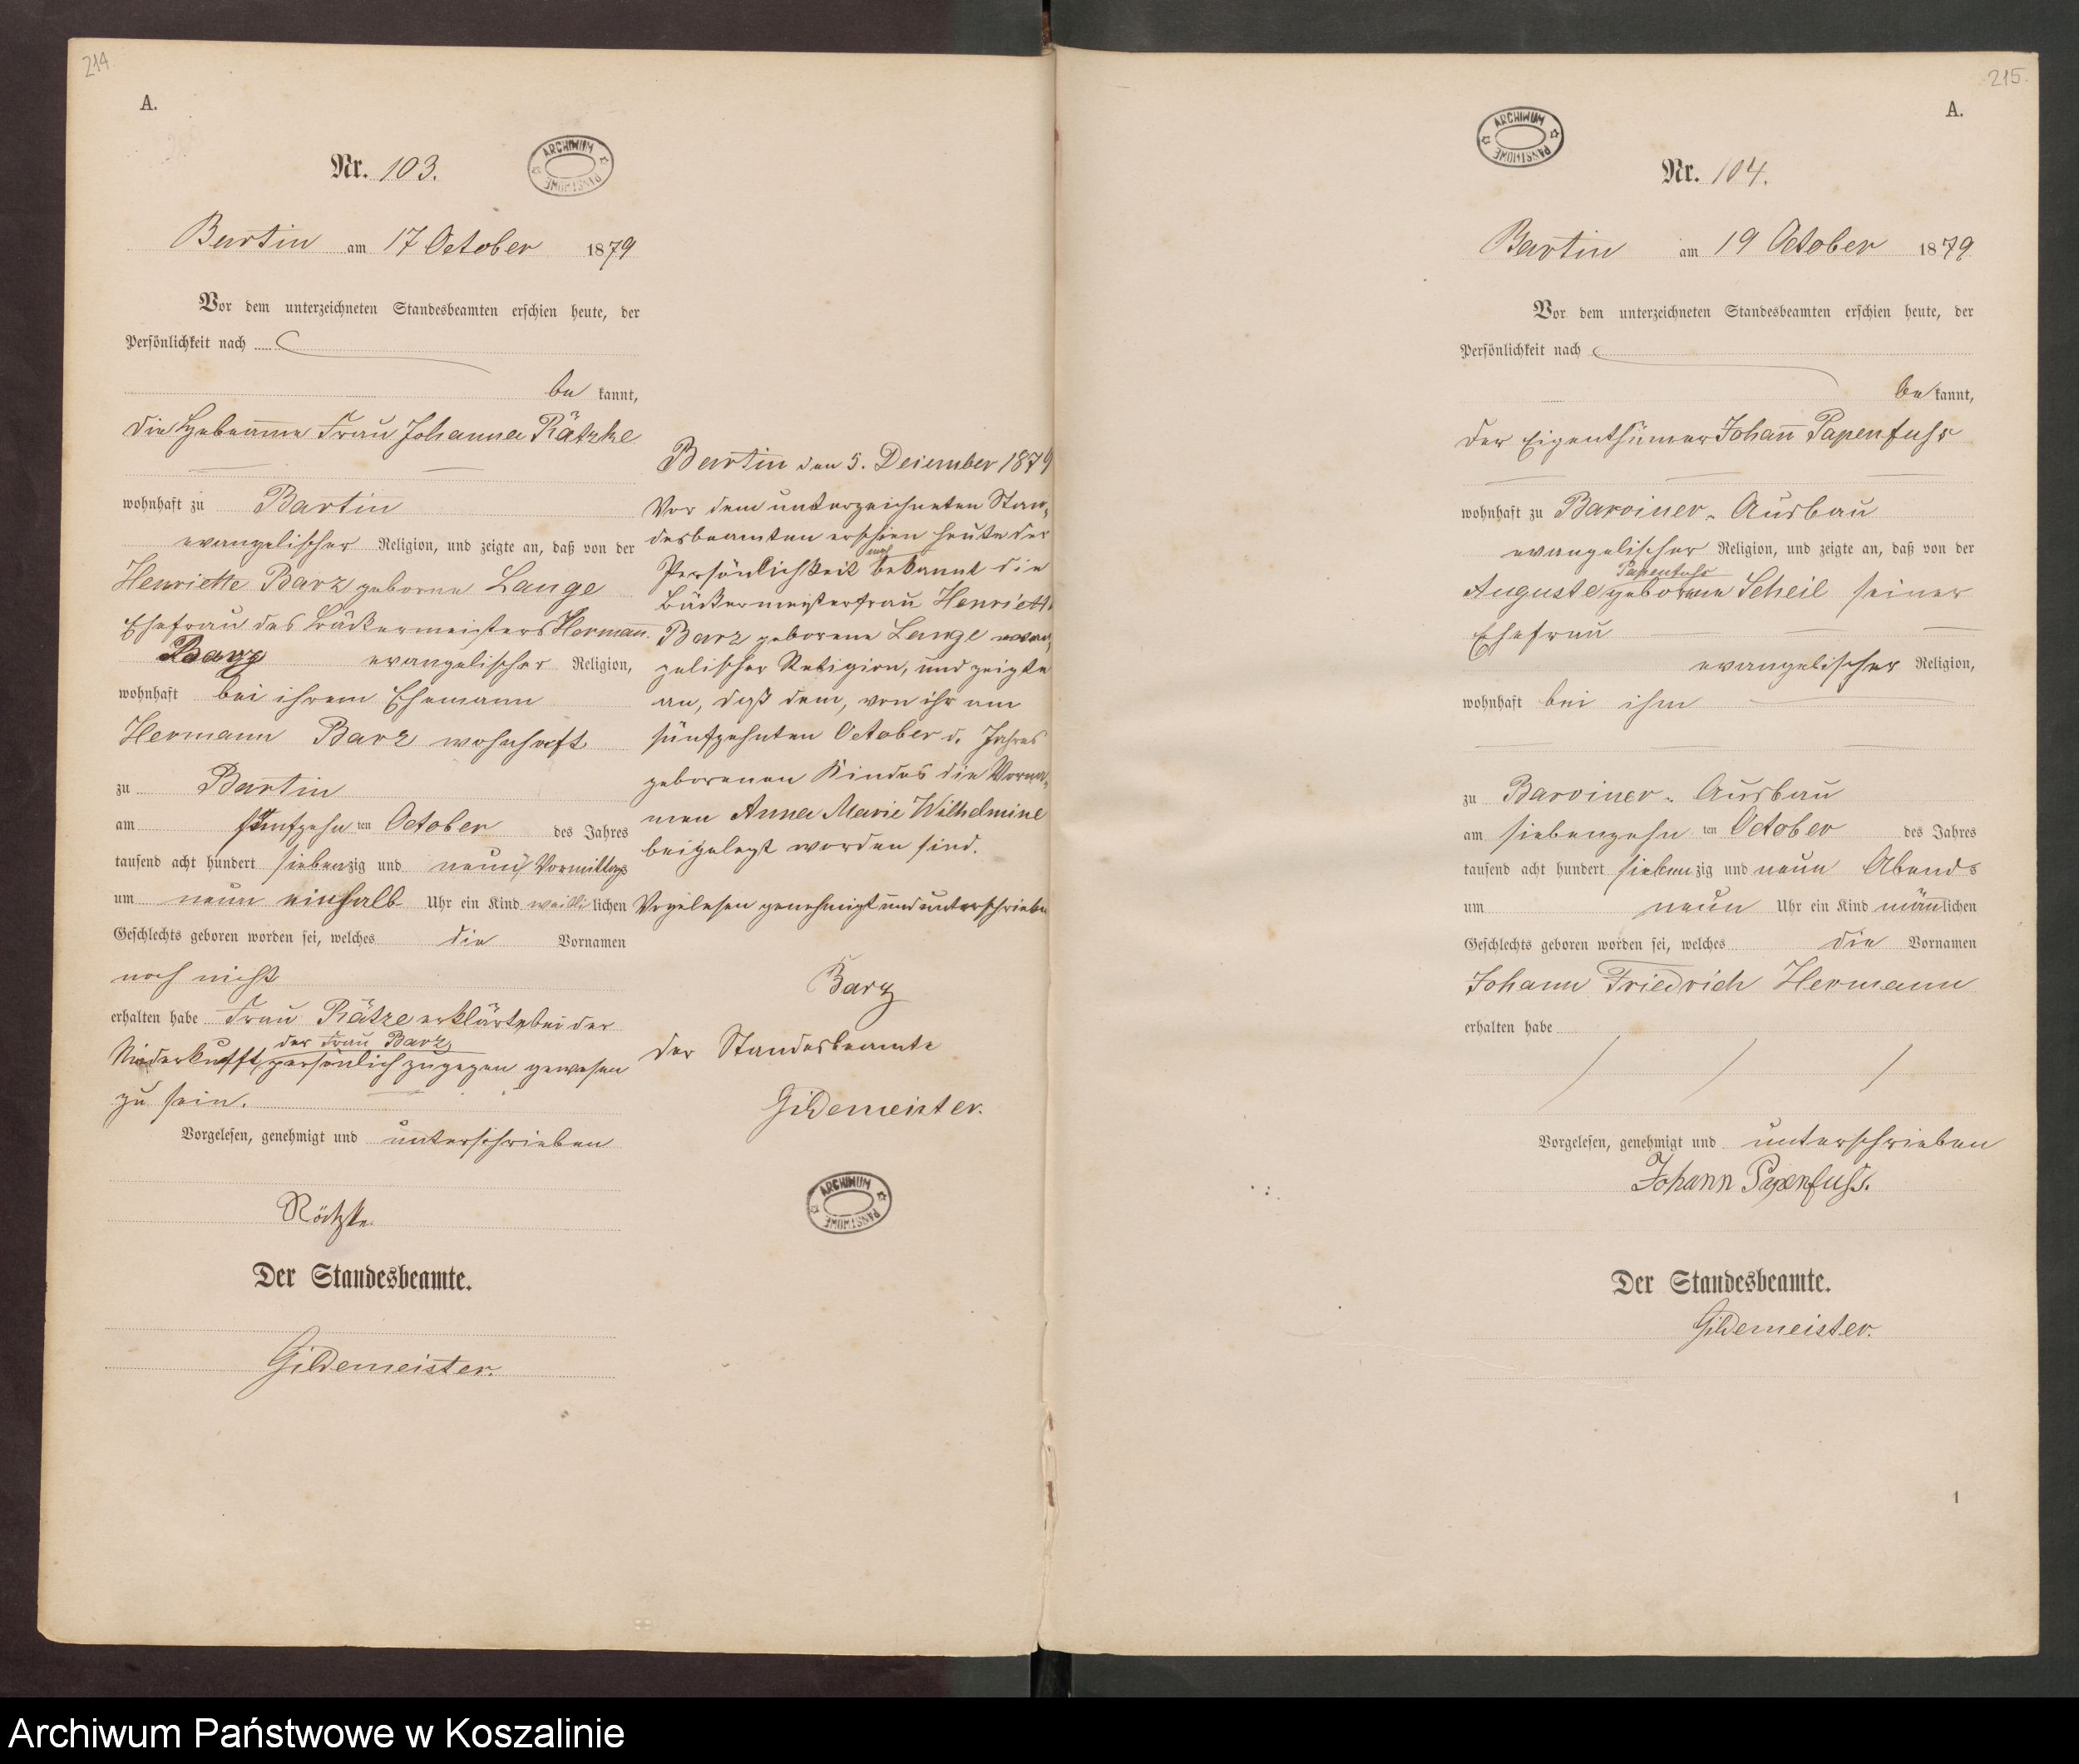 214.
A.
Nr. 103.
ARCHIWUM PAŃSTWOWE
Bartin am 17 October 1879
Vor dem unterzeichneten Standesbeamten erschien heute, der
Persönlichkeit nach
be kannt,
die Hebeamme Frau Johanna Rätzke
wohnhaft zu Bartin
evangelischer Religion, und zeigte an, daß von der
Henriette Barz geborne Lange
Ehefrau des Bäckermeisters Hermann
Barz evangelischer Religion,
wohnhaft bei ihrem Ehemann
Hermann Barz wohnhaft
zu Bartin
am fünfzehn ten October des Jahres
tausend acht hundert siebenzig und neun Vormittags
um neun einhalb Uhr ein Kind weibli lichen
Geschlechts geboren worden sei, welches die Vornamen
noch nicht
erhalten habe Frau Rätze erklärte, bei der
der Frau Barz
Niederkunft, persönlich zugegen gewesen
zu sein.
Vorgelesen, genehmigt und unterschrieben
Rätzke.
Der Standesbeamte.
Gildemeister.
Bartin den 5. Dezember 1879
Vor dem unterzeichneten Stan-
desbeamten erschien heute der
nach
Persönlichkeit bekannt die
Bäckermeisterfrau Henriett
Barz geborene Lange evan-
gelischer Religion, und zeigte
an, daß dem, von ihr am
fünfzehnten October d. Jahres
geborenen Kindes die Vorna-
men Anna Marie Wilhelmine
beigelegt worden sind.
Vorgelesen genehmigt und unterschrieben
Barz
Der Standesbeamte
Gildemeister.
ARCHIWUM PAŃSTWOWE
215.
A.
ARCHIWUM PAŃSTWOWE
Nr. 104.
Bartin am 19 October 1879
Vor dem unterzeichneten Standesbeamten erschien heute, der
Persönlichkeit nach
be kannt,
der Eigenthümer Johann Papenfuss
wohnhaft zu Barviner-Ausbau
evangelischer Religion, und zeigte an, daß von der
Papenfuss
Auguste geborene Scheil seiner
Ehefrau
evangelischer Religion,
wohnhaft bei ihm
zu Barviner-Ausbau
am siebenzehn ten October des Jahres
tausend acht hundert sieben zig und neun Abends
um neun Uhr ein Kind männlichen
Geschlechts geboren worden sei, welches die Vornamen
Johann Friedrich Hermann
erhalten habe
Vorgelesen, genehmigt und unterschrieben
Johann Papenfuss.
Der Standesbeamte.
Gildemeister.
1
Archiwum Państwowe w Koszalinie